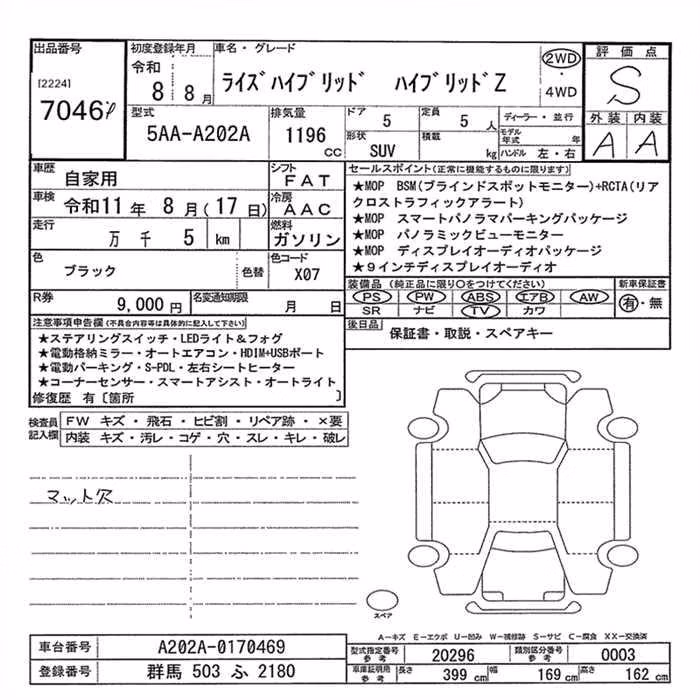 出品番号
[2224]
7046
初度登録年月
令和
8 8月
車名・グレード
ライズハイブリッド ハイブリッドZ
2WD
・
4WD
評価点
S
外装 内装
A A
型式
5AA-A202A
排気量
1196
CC
ドア 5
定員 5 人
形状 SUV
積載 kg
ディーラー・並行
モデル年式 年
ハンドル 左・右
車歴
自家用
シフト
FAT
車検
令和11年 8月(17日)
冷房
AAC
走行
万 千 5 km
燃料
ガソリン
色
ブラック
色替
色コード
X07
R券
9,000円
名変通知期限
月 日
セールスポイント(正常に機能するものに限ります)
★MOP BSM(ブラインドスポットモニター)+RCTA(リア
クロストラフィックアラート)
★MOP スマートパノラマパーキングパッケージ
★MOP パノラミックビューモニター
★MOP ディスプレイオーディオパッケージ
★9インチディスプレイオーディオ
装備品(純正品に限り○をつけてください)
PS PW ABS エアB AW
SR ナビ TV カワ
新車保証書
有・無
後日品
保証書・取説・スペアキー
注意事項申告欄(不具合内容等は具体的に記入して下さい)
★ステアリングスイッチ・LEDライト&フォグ
★電動格納ミラー・オートエアコン・HDIM+USBポート
★電動パーキング・S-PDL・左右シートヒーター
★コーナーセンサー・スマートアシスト・オートライト
修復歴 有〔箇所 〕
検査員
記入欄
FW キズ・飛石・ヒビ割・リペア跡・×要
内装 キズ・汚レ・コゲ・穴・スレ・キレ・破レ
マット欠
スペア
A-キズ E-エクボ U-凹み W-補修跡 S-サビ C-腐食 XX-交換済
車台番号
A202A-0170469
登録番号
群馬 503 ふ 2180
型式指定番号
参考
20296
類別区分番号
参考
0003
車庫証明用
参考
長さ 399 cm
幅 169 cm
高さ 162 cm